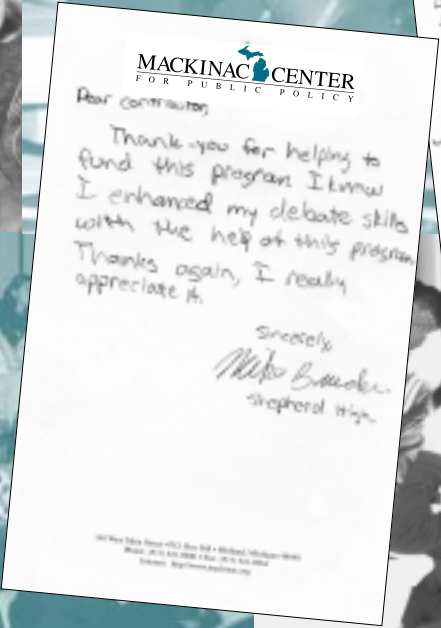 MACKINAC CENTER
FOR PUBLIC POLICY
Dear contributor,
Thank-you for helping to
fund this program I know
I enhanced my debate skills
with the help of this program.
Thanks again, I really
appreciate it.
Sincerely,
Mike
Shepherd High